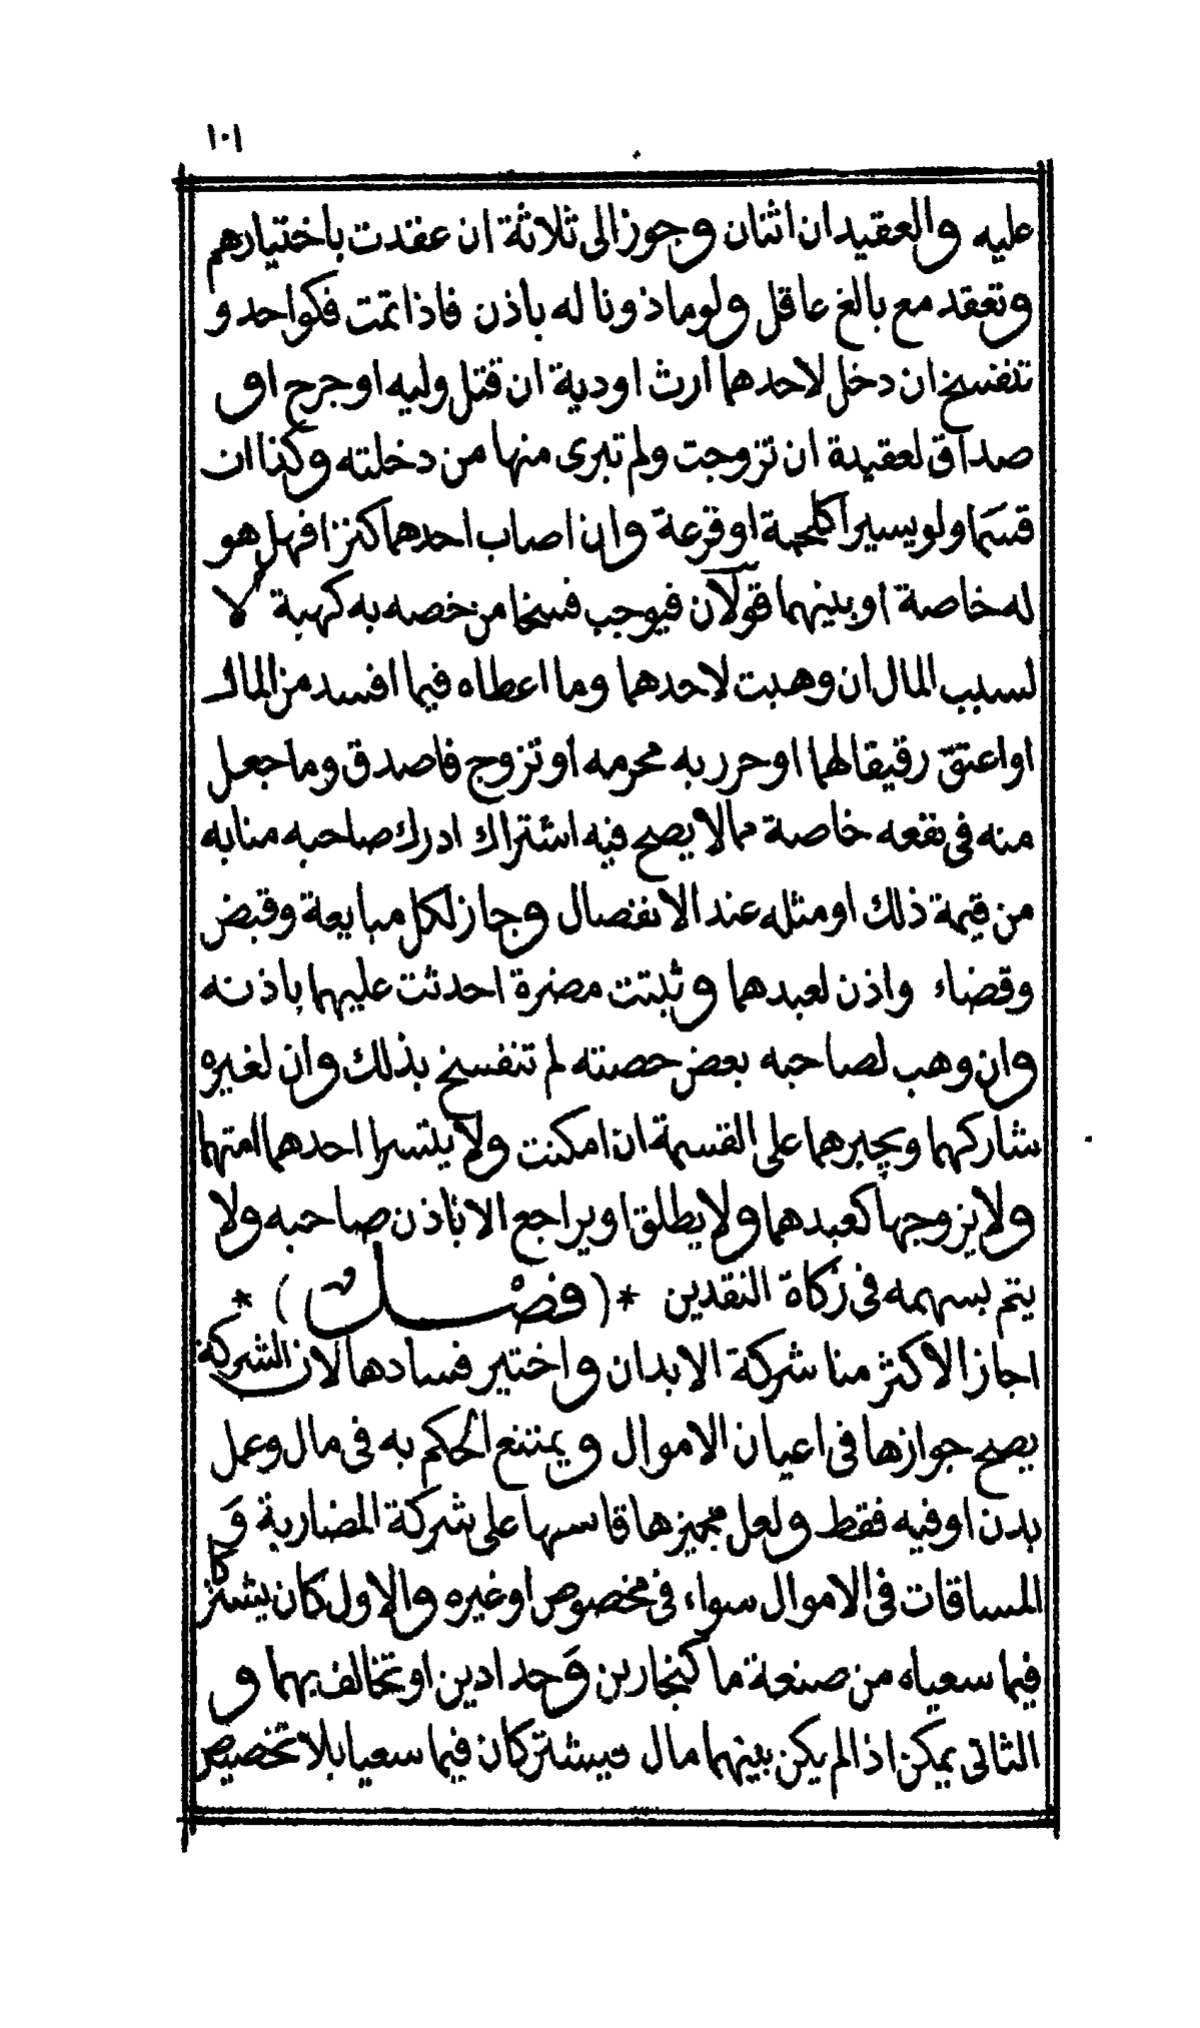 ١٠١
عليه والعقيدان اثنان وجوز الى ثلاثة ان عقدت باختيارهم
وتعقد مع بالغ عاقل ولو ماذونا له باذن فاذا تمت فكواحد و
تنفسخ ان دخل لاحدهما ارث او دية ان قتل وليه او جرح او
صداق لعقيدة ان تزوجت ولم تبرى منها من دخلته وكذا ان
قسما ولو يسيرا كلحمة او قرعة وان اصاب احدهما كنزا فهل هو
له خاصة او بينهما قولان فيوجب فسخا من خصه به كهبة لا
لسبب المال ان وهبت لاحدهما وما اعطاه فيما افسد من المال
او اعتق رقيقا لهما او حرر به محرمه او تزوج فاصدق وما جعل
منه فى نفعه خاصة مما لا يصح فيه اشتراك ادرك صاحبه منابه
من قيمة ذلك او مثله عند الانفصال وجاز لكل مبايعة وقبض
وقضاء واذن لعبدهما وثبتت مضرة احدثت عليهما باذنه
وان وهب لصاحبه بعض حصته لم تنفسخ بذلك وان لغيره
شاركهما ويجبرهما على القسمة ان امكنت ولا يتسرا احدهما امتهما
ولا يزوجها كعبدهما ولا يطلق او يراجع الا باذن صاحبه ولا
يتم بسهمه فى زكاة النقدين * ( فصل ) *
اجاز الاكثر منا شركة الابدان واختير فسادها لان الشركة
يصح جوازها فى اعيان الاموال ويمتنع الحكم به فى مال وعمل
بدن او فيه فقط ولعل مجيزها قاسها على شركة المضاربة و
المساقات فى الاموال سواء فى مخصوص او غيره والاول كان يشتركا
فيما سعياه من صنعة ما كنجارين وحدادين او تخالف بهما و
الثانى يمكن اذا لم يكن بينهما مال فيشتركان فيما سعيا بلا تخصيص